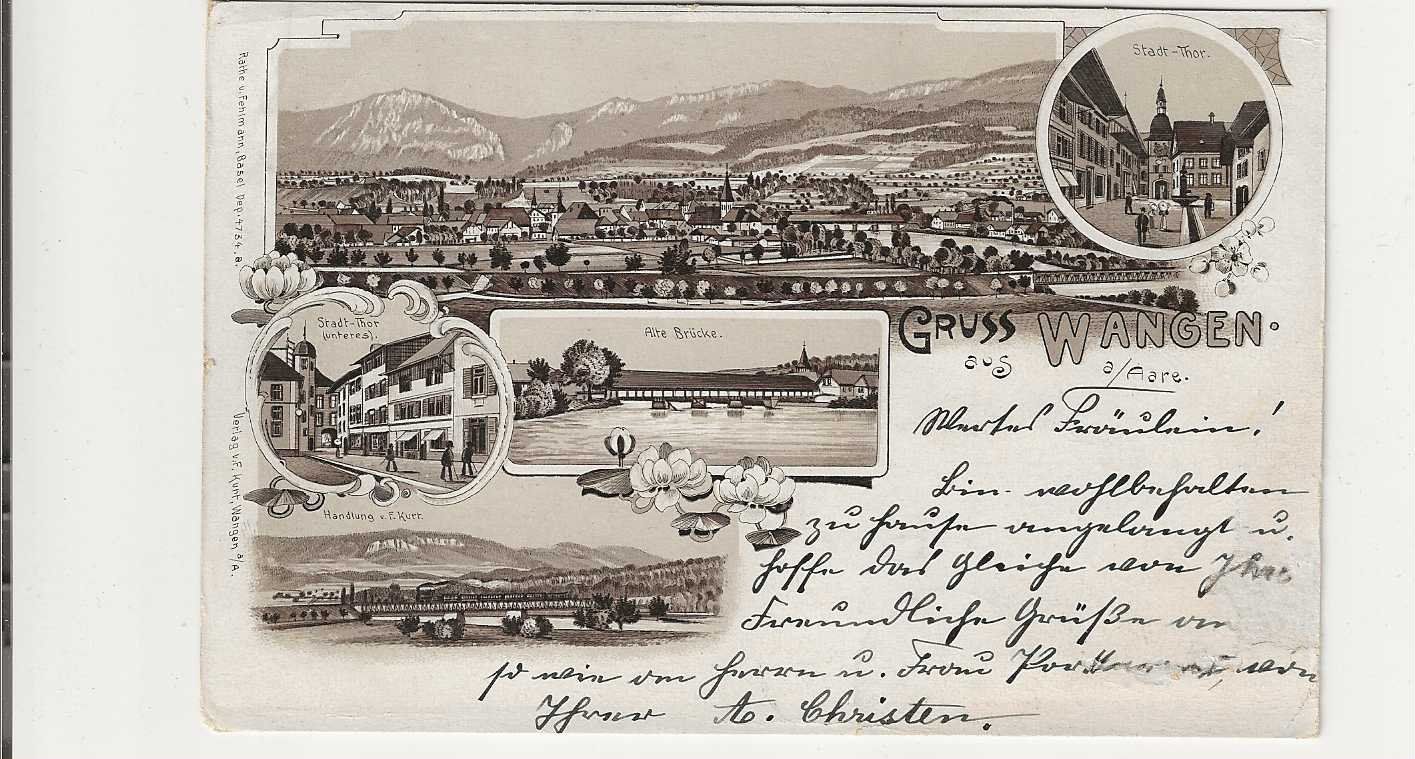 Stadt-Thor.
Rathe u. Fehlmann, Basel Dep. 4734. a.
Stadt-Thor
(unteres).
Alte Brücke.
GRUSS
aus
WANGEN.
a/Aare.
Handlung v. F. Kurt.
Verlag v. F. Kurt, Wangen a/A.
Wertes Fräulein!
Bin wohlbehalten
zu hause angelangt u.
hoffe das Gleiche von
Freundliche Grüße an
so wie an Herrn u. Frau von
Ihrer A. Christen.